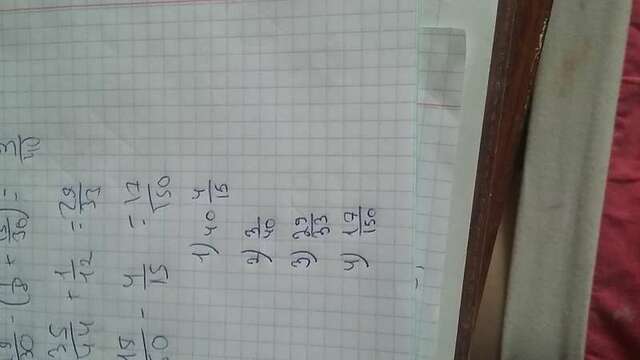 /30 - (1/8 + 15/30) = 3/40
35/44 + 1/12 = 29/33
/50 - 4/15 = 17/150
1) 40 4/15
2) 3/40
3) 29/33
4) 17/150